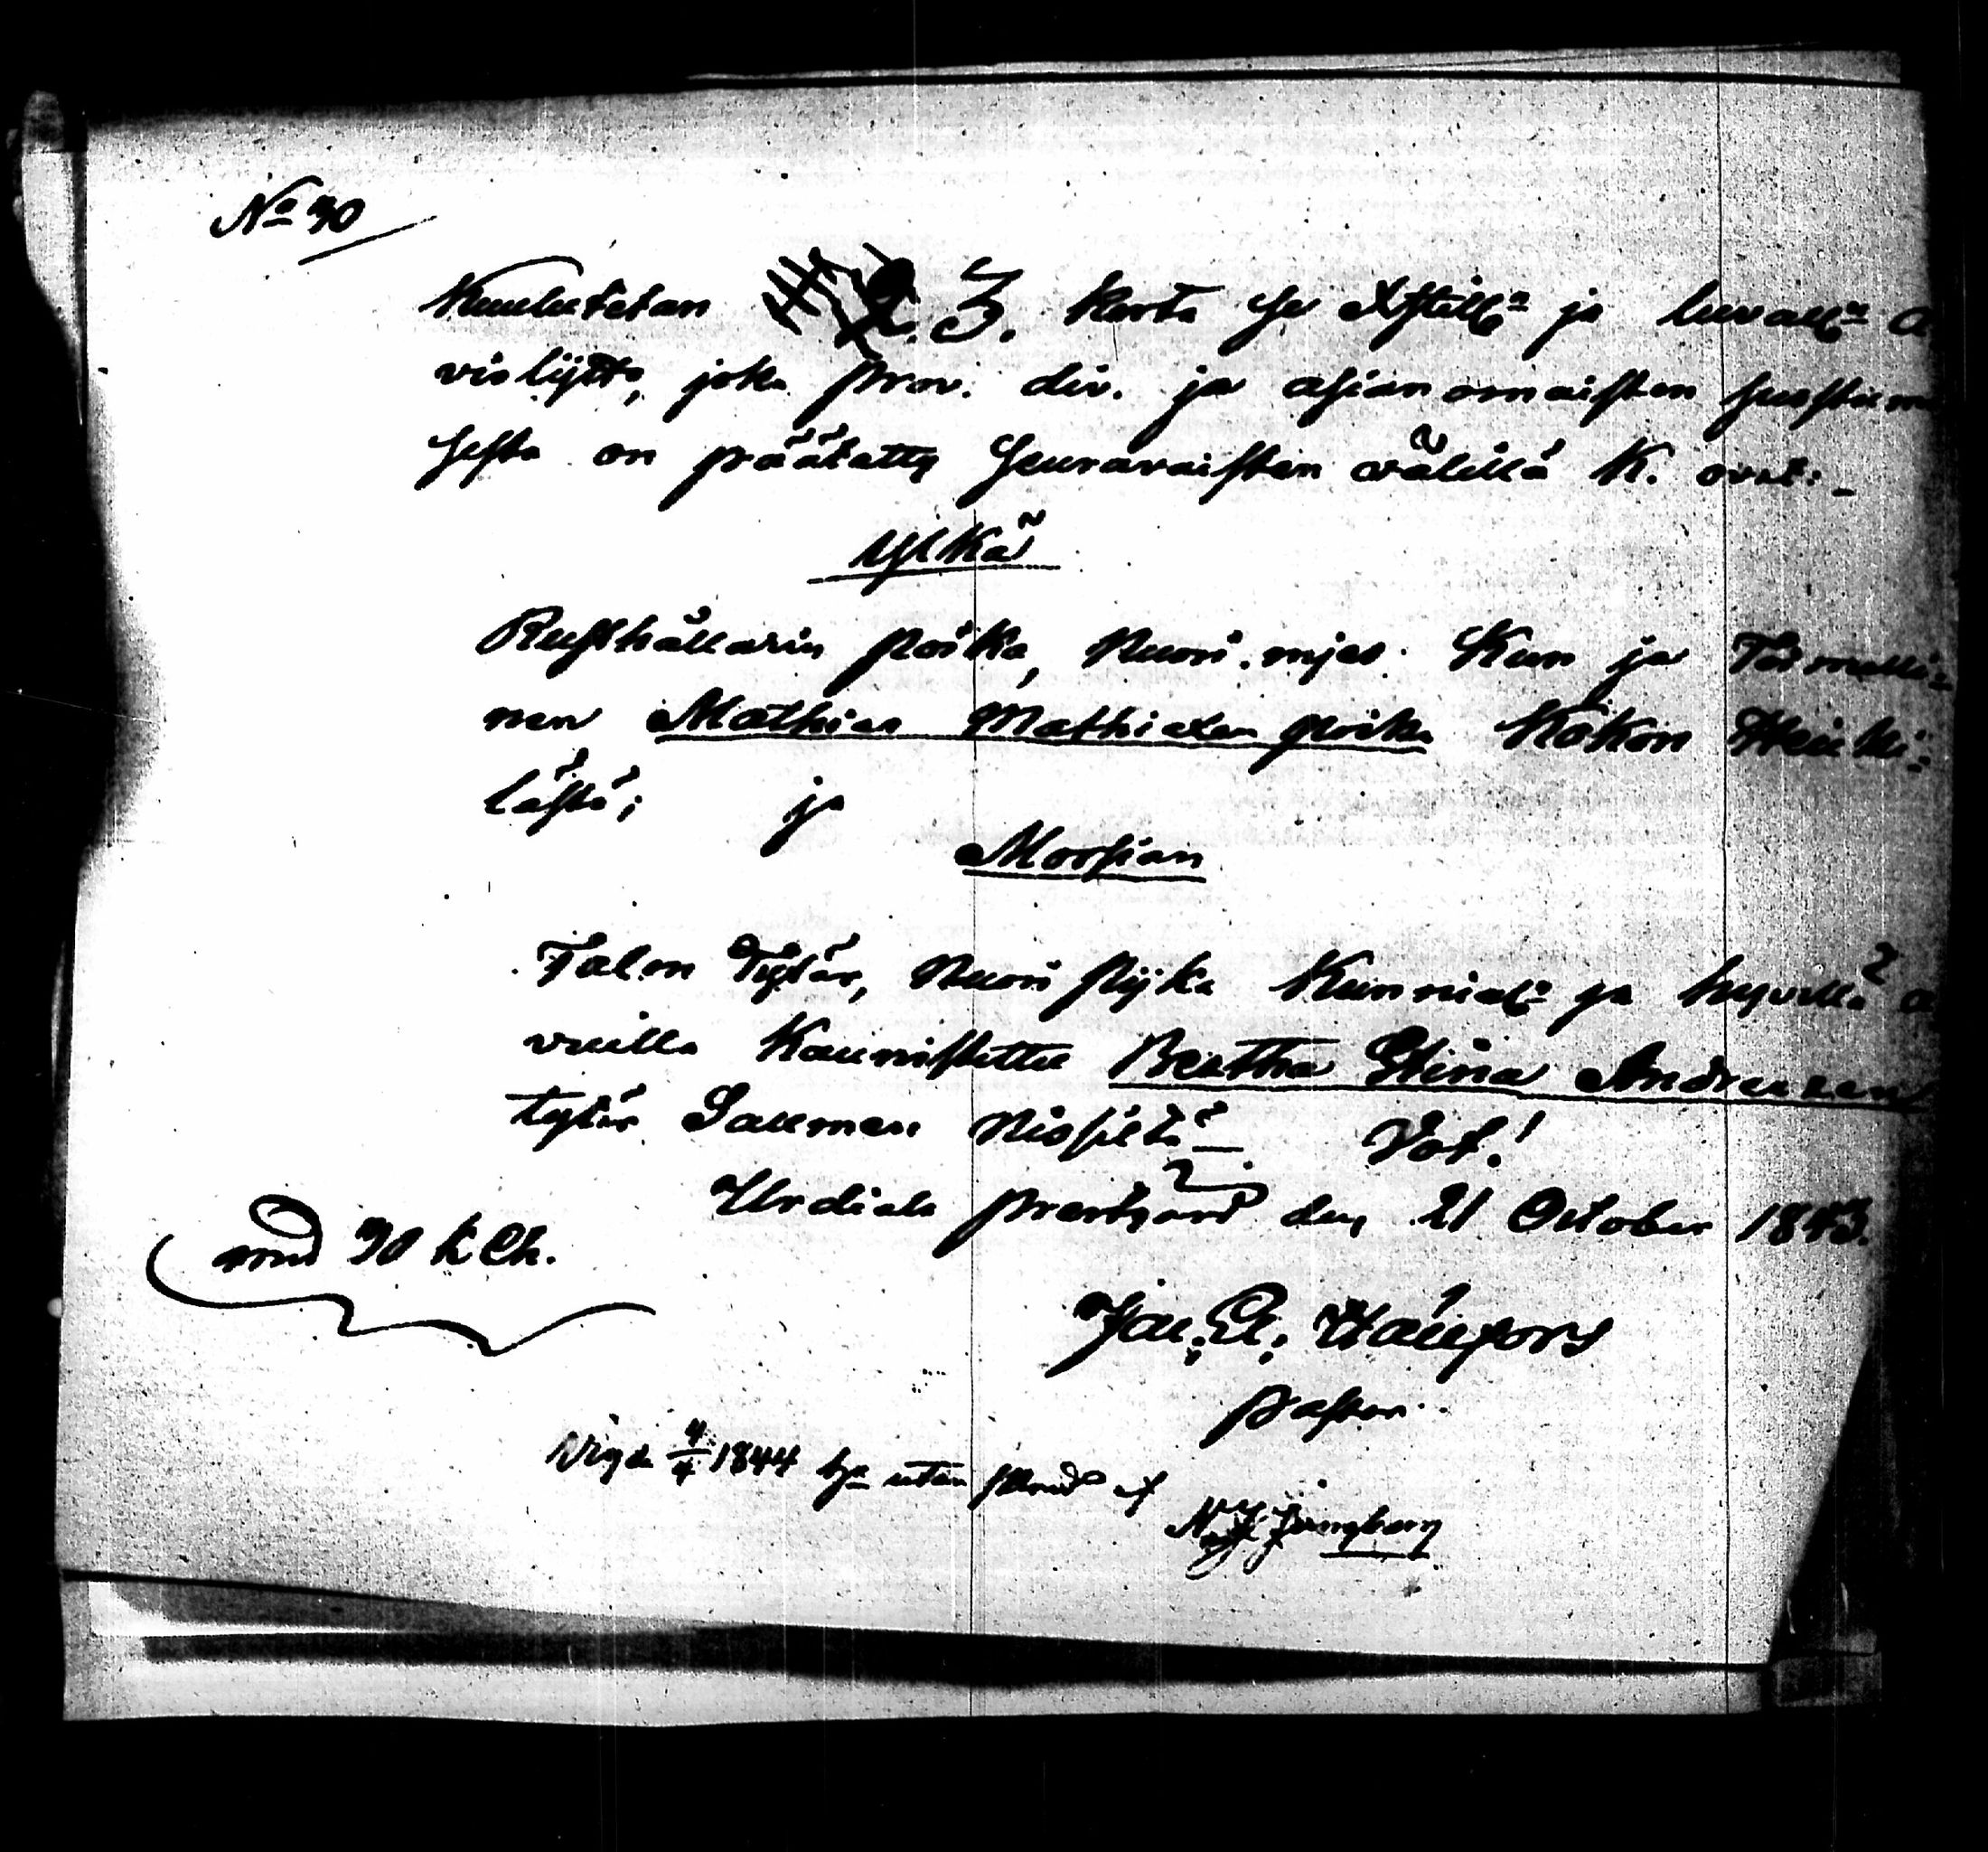 No 70
Kuulutetan 1. 2. 3. kerta se Xstill:n ja luvall:n a
violijtto, joka prov. div. ja asianomaisten suostumu
sesta on päätetty seuravaisten välillä K. ovat:
Ylkä
Rusthållarin poika, Nuori mjes Kun ja Toimelli=
nen Mathias Mathiaxen poika Kokon Heikki=
lästä; ja
Morsian
Talon Tytär, Nuori pijka Kunnial: ja hyvillä a
vuilla Kaunistettu Bertha Stina Andreaxen
tytär Saumen Vot!
Urdiala prestgård den 21 October 1843.
Jac. Ed. Hällfors
pastor.
Vigde 4/4 1844 utan af